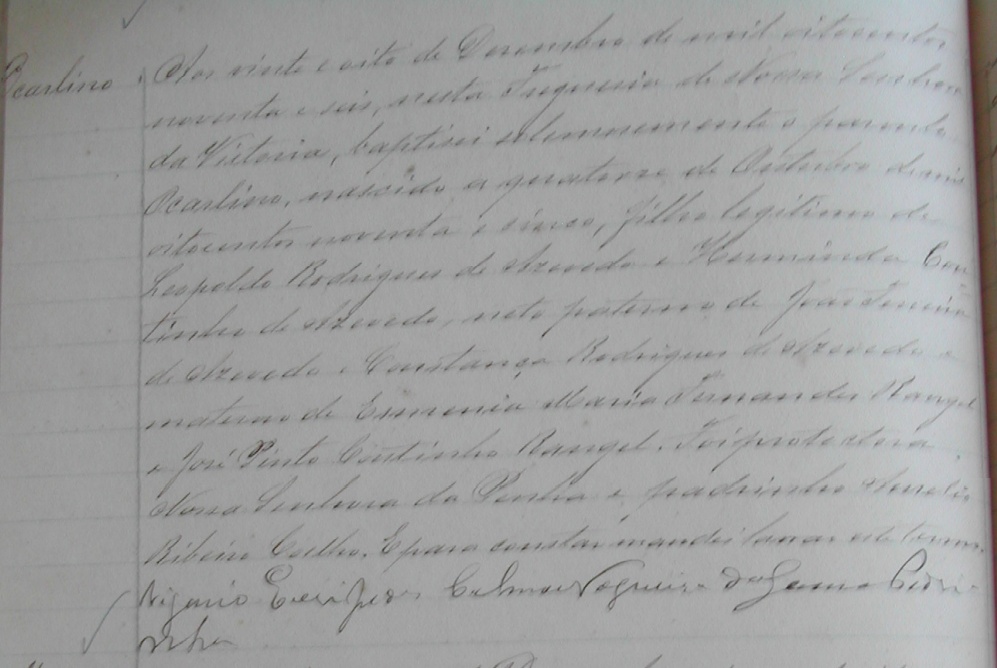 Ocarlino
Aos vinte e oito de Dezembro de mil oitocentos
noventa e seis, nesta Freguesia de Nossa Senhora
da Victoria, baptisei solemnemente o parvulo
Ocarlino, nascido a quatorze de Outubro de mil
oitocentos noventa e cinco, filho legitimo de
Leopoldo Rodrigues de Azevedo e Herminda Cou
tinho de Azevedo, neto paterno de João Ferreira
de Azevedo e Constança Rodrigues de Azevedo e
materno de Ermenia Maria Fernandes Rangel
e José Pinto Coutinho Rangel. Foi protectora
Nossa Senhora da Penha e padrinho Aurelio
Ribeiro Coelho. E para constar mandei lavrar este termo.
Vigario Nogueira da Gama